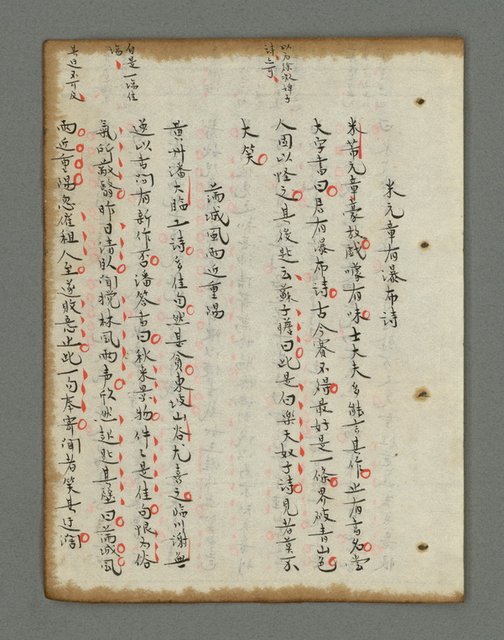 米元章有瀑布詩
米芾元章豪放戲噱有味士大夫多能言其作止有書名嘗
大字書曰君有瀑布詩古今賽不得最好是一條界破青山色
人固以怪之其後題云蘇子瞻曰此是白樂天奴子詩見者莫不
大笑
滿城風雨近重陽
黃州潘大臨工詩多佳句然甚貧東坡山谷尤喜之臨川謝無
逸以書問有新作否潘答書曰秋來景物件件是佳句恨為俗
氛所蔽翳昨日清臥聞攪林風雨聲欣然起題其壁曰滿城風
雨近重陽忽催租人至遂敗意止此一句奉寄聞者笑其迂闊
以為徐凝
詩之
自是一端佳
其迂不可及